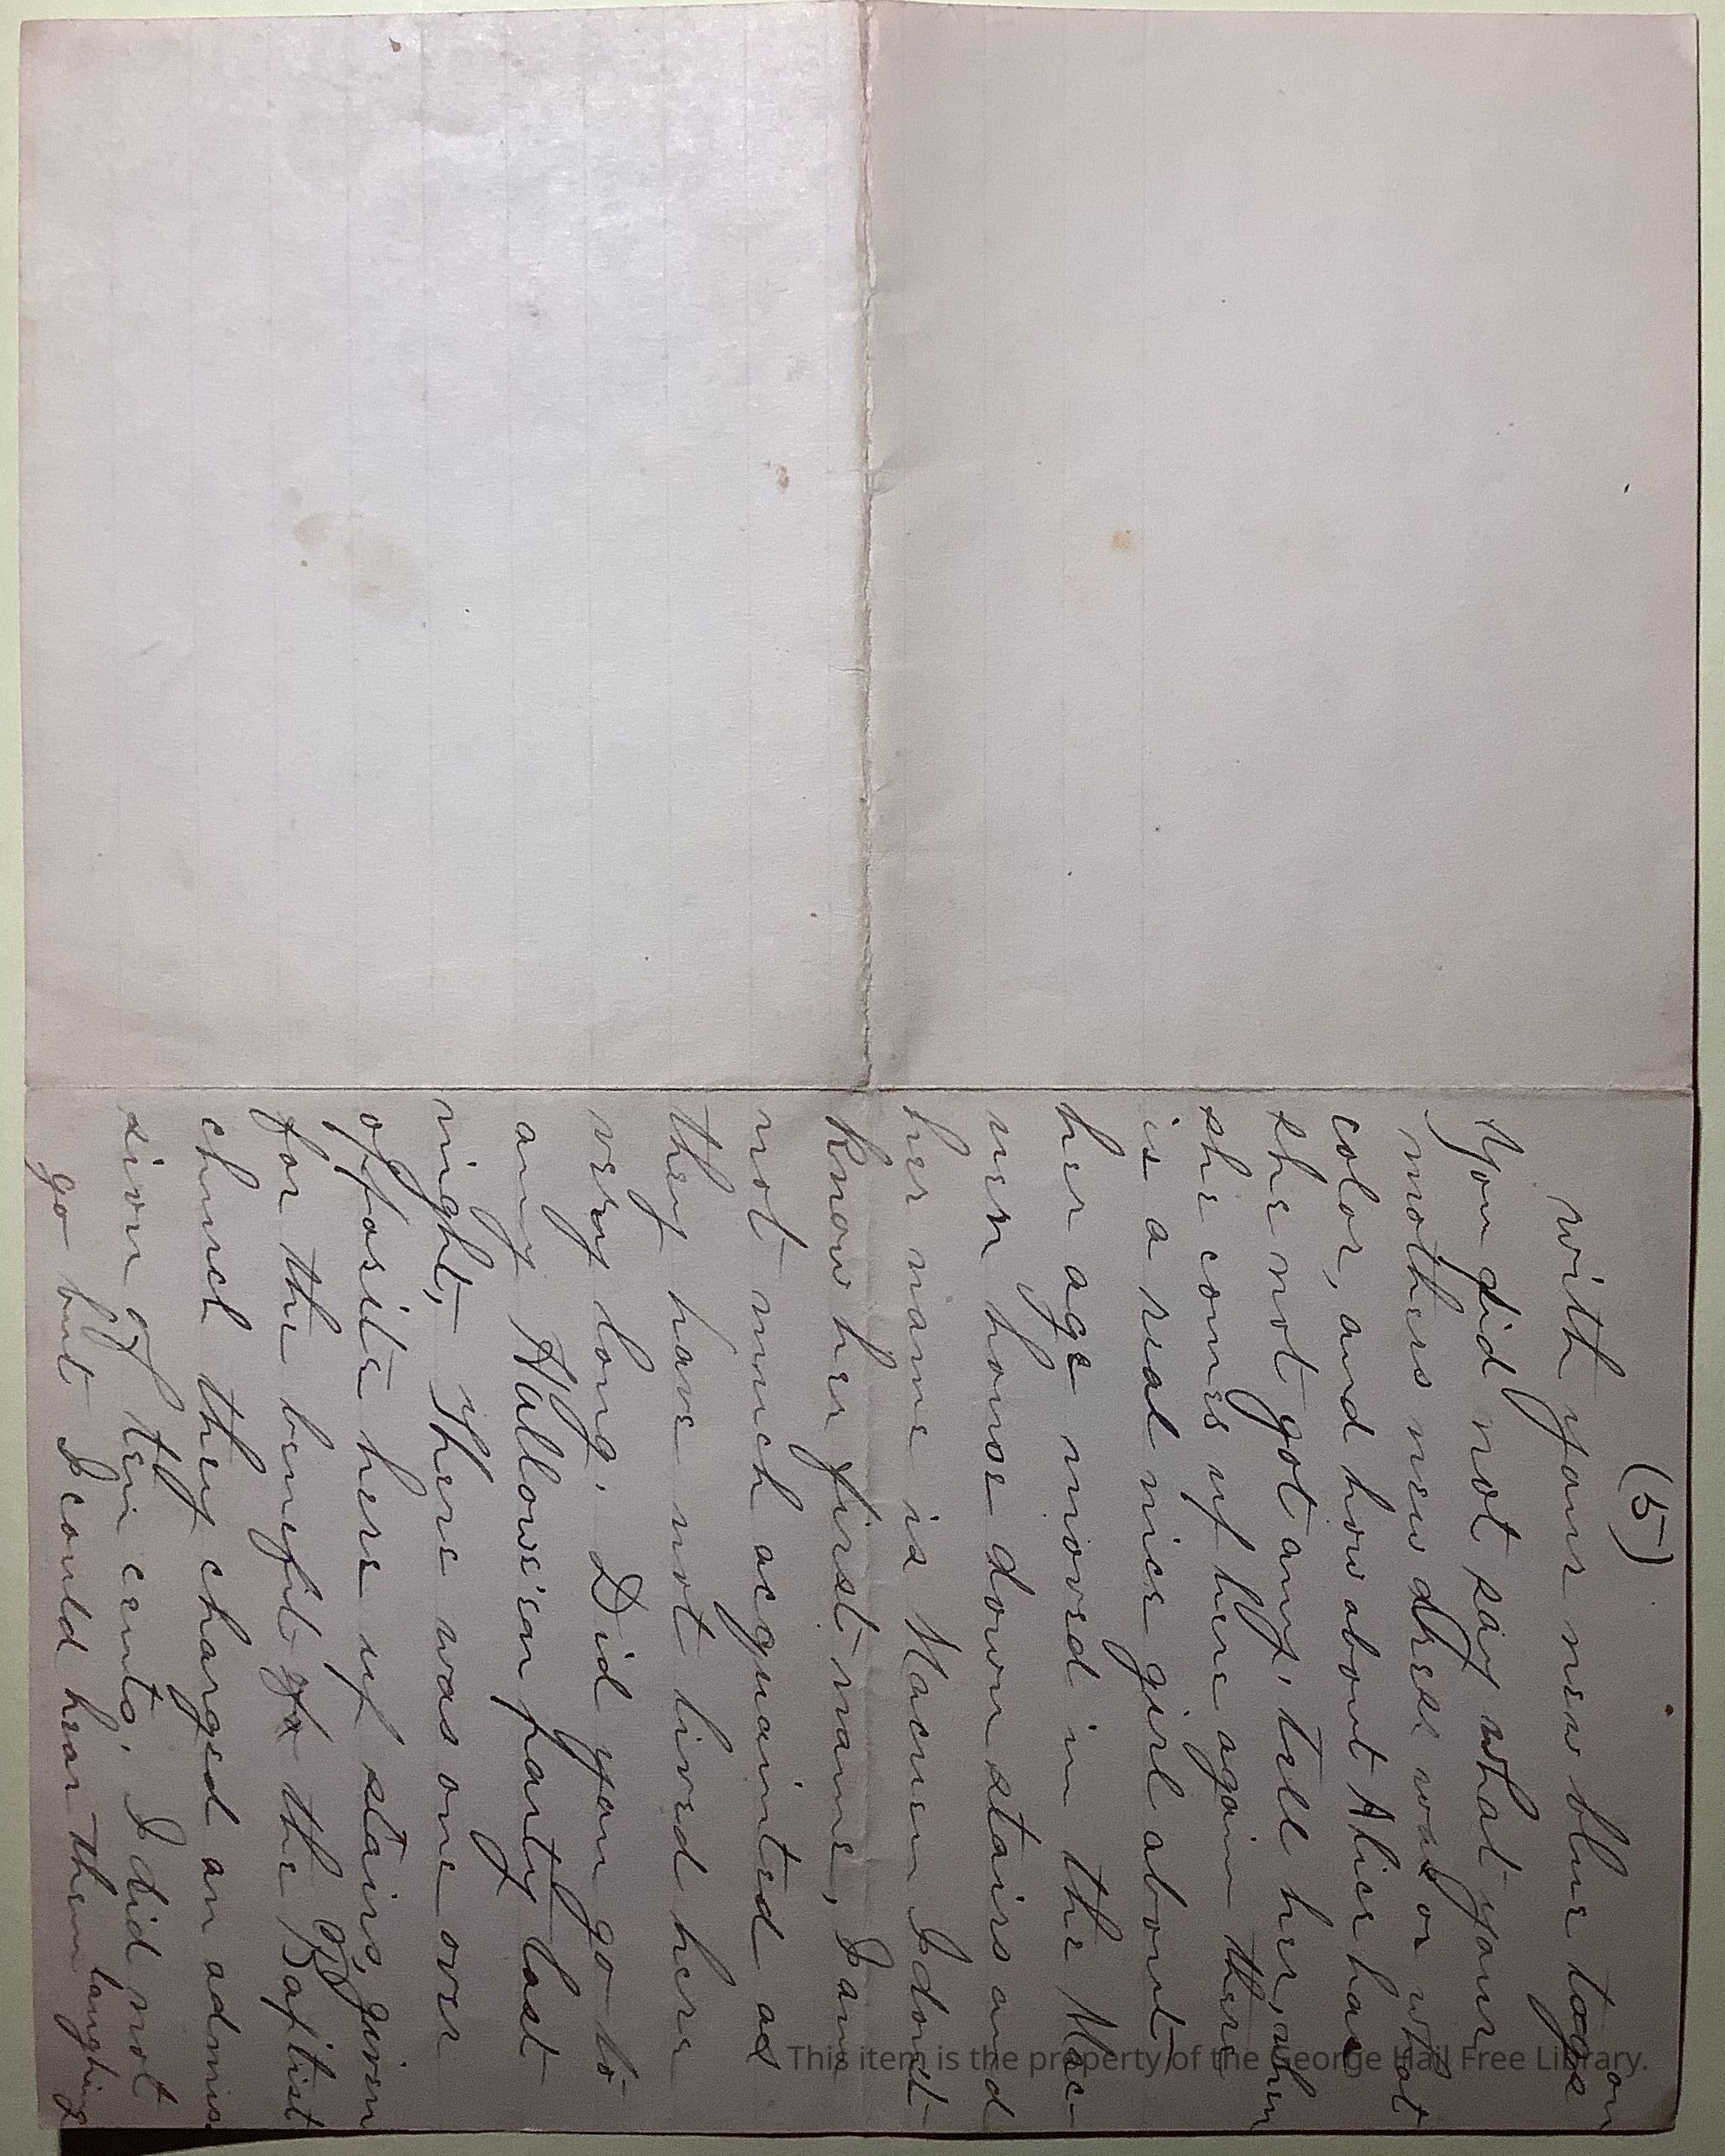 (5)
with your new blue togs on
You did not say what your
mothers new dress was or what
color, and how about Alice has
she not got any, tell her, when
she comes up here again there
is a real nice girl about
her age moved in the Mac-
uen house down stairs and
her name is Macuen I dont
know her first name, I am
not much acquainted as
they have not lived here
very long. Did you go to
any Hallowe'en party last
night, There was one over
opposite here up stairs, given
for the benefit of the Baptist
church they charged an admis
sion of ten cents, I did not
go but I could hear them laughing
This item is the property of the George Hail Free Library.